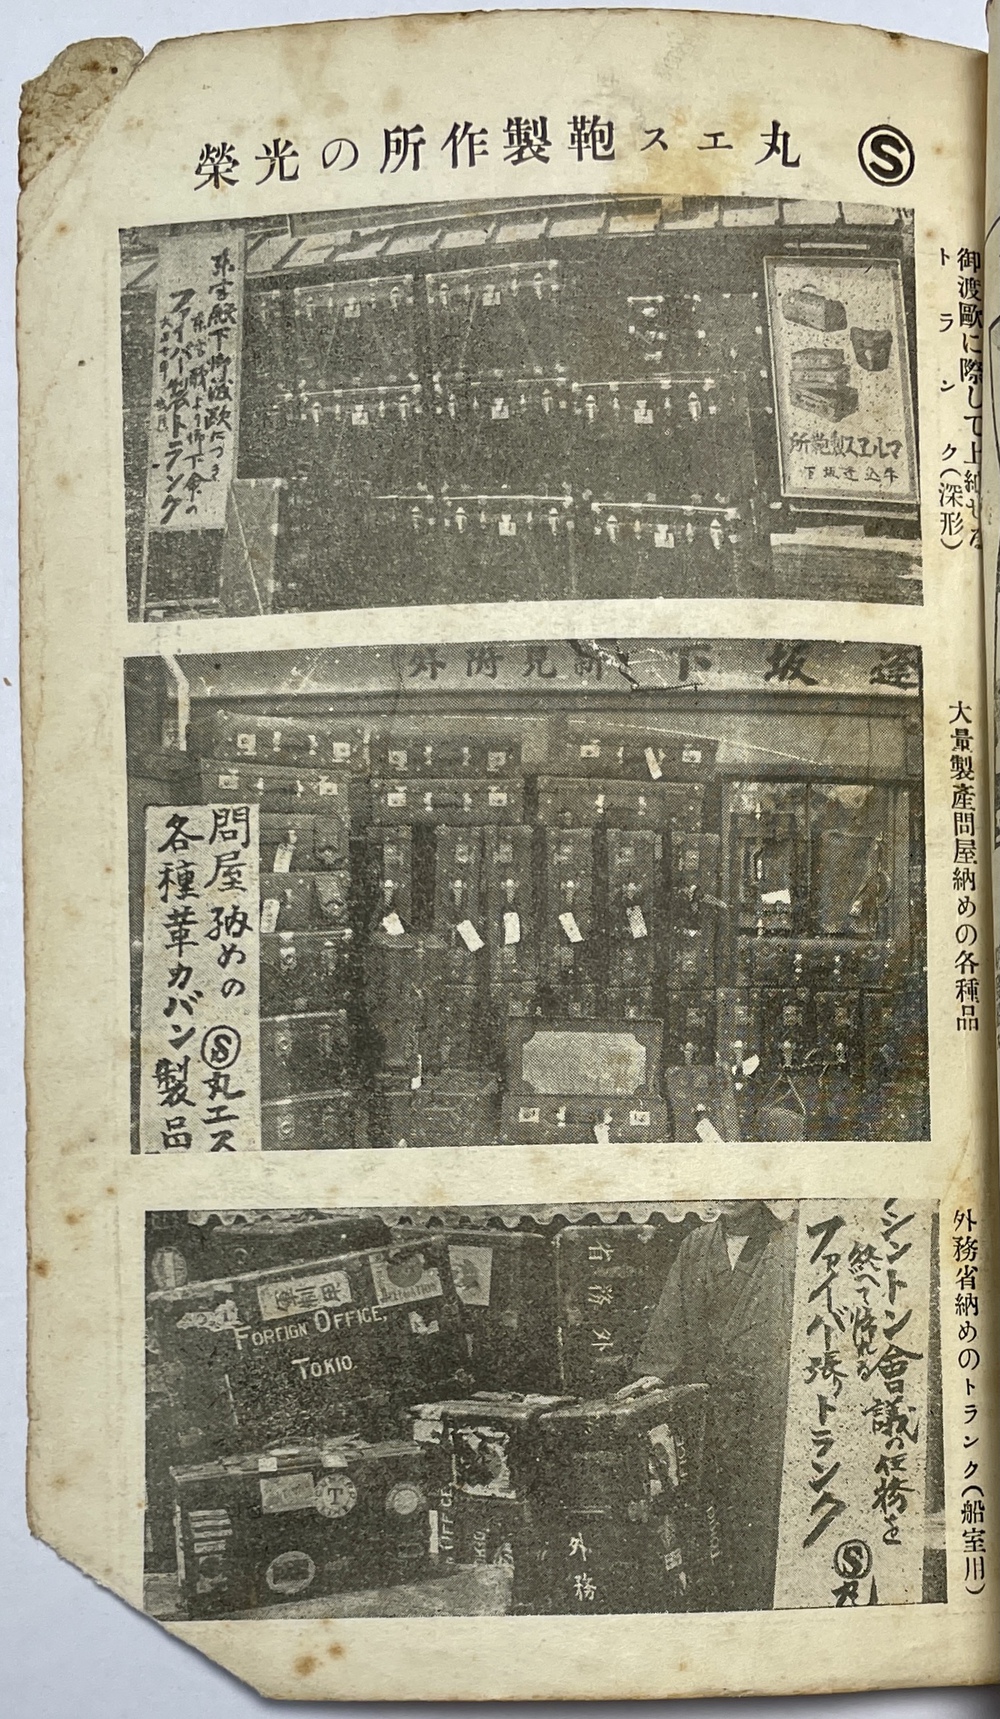 Ⓢ 丸エス鞄製作所の光榮
御渡歐に際して上納せる
トランク(深形)
東宮殿下御渡歐につき
東宮職より御下命の
ファイバー製トランク
マルエス製鞄所
牛込逢坂下
大量製產問屋納めの各種品
逢坂下
新見附外
問屋納めのⓈ丸エス
各種革カバン製品
外務省納めのトランク(船室用)
シントン會議の任務を
終へて歸れる
ファイバー張りトランク
Ⓢ丸
FOREIGN OFFICE,
TOKIO.
外務省
外務